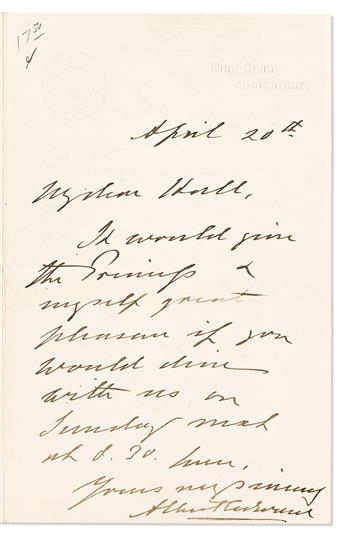 17 50
Turf Club
Piccadilly.
April 20th
My dear Hall,
It would give
the Princess &
myself great
pleasure if you
would dine
with us on
Sunday next
at 8.30. here,
Yours very sincerely
Albert Edward